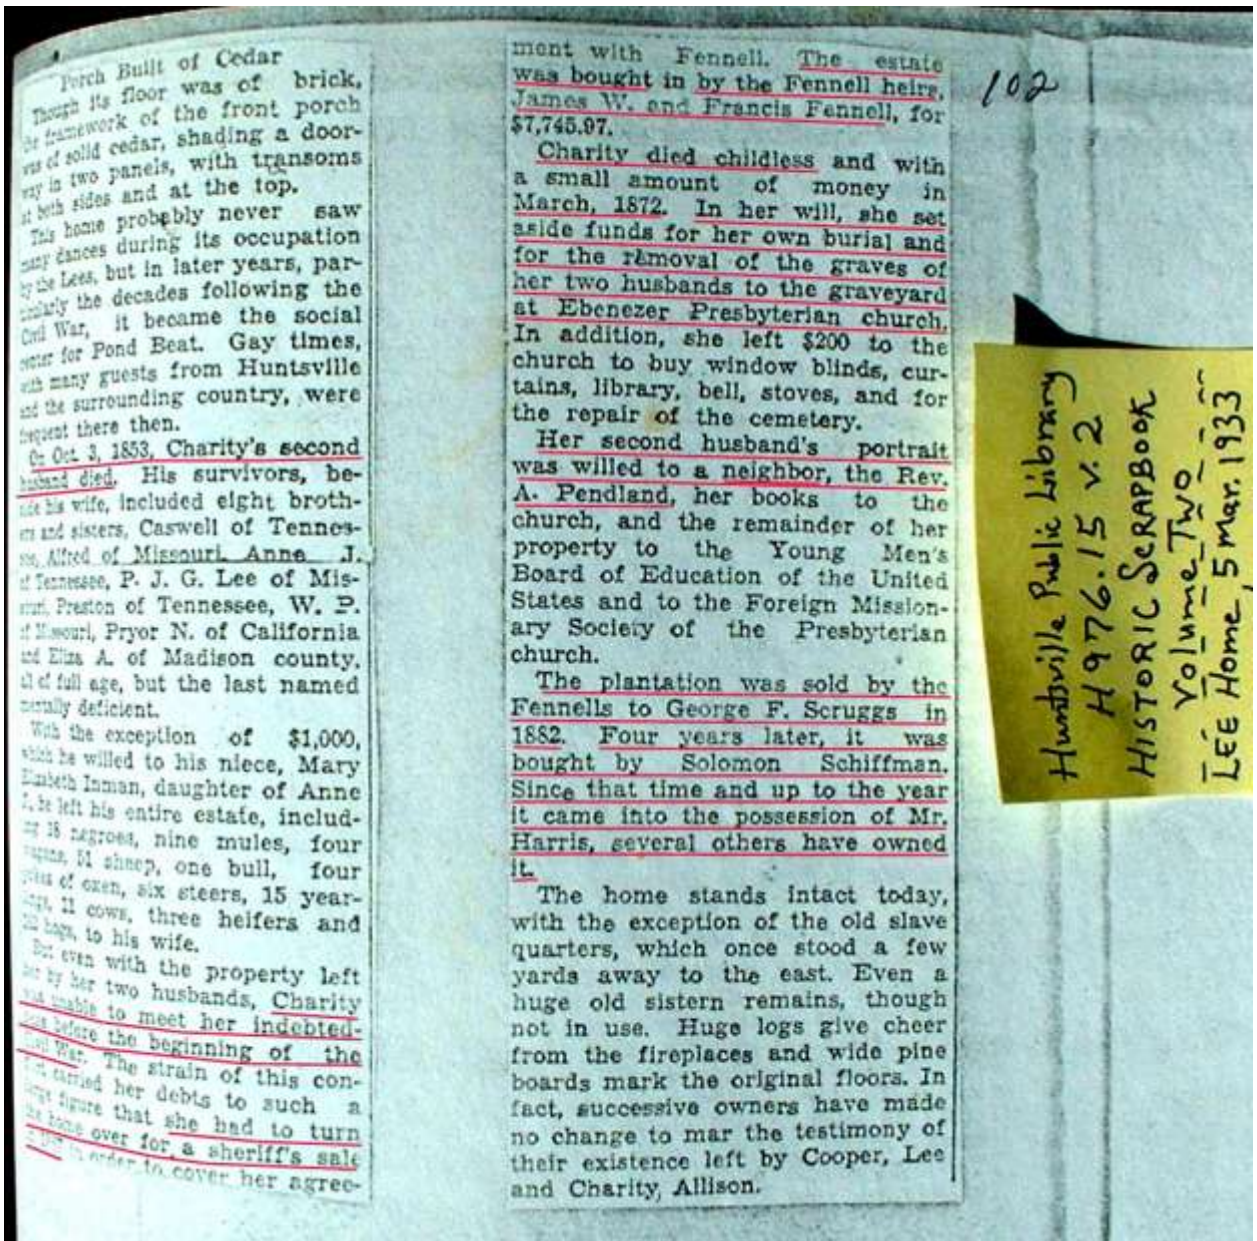 Porch Built of Cedar
Though its floor was of brick,
the framework of the front porch
was of solid cedar, shading a door-
way in two panels, with transoms
at both sides and at the top.
This home probably never saw
many dances during its occupation
by the Lees, but in later years, par-
ticularly the decades following the
Civil War, it became the social
center for Pond Beat. Gay times,
with many guests from Huntsville
and the surrounding country, were
frequent there then.
On Oct. 3, 1853, Charity's second
husband died. His survivors, be-
side his wife, included eight broth-
ers and sisters, Caswell of Tennes-
see, Alfred of Missouri, Anne J.
of Tennessee, P. J. G. Lee of Mis-
souri, Preston of Tennessee, W. P.
of Missouri, Pryor N. of California
and Eliza A. of Madison county,
all of full age, but the last named
mentally deficient.
With the exception of $1,000,
which he willed to his niece, Mary
Elizabeth Inman, daughter of Anne
J., he left his entire estate, includ-
ing 18 negroes, nine mules, four
wagons, 51 sheep, one bull, four
yokes of oxen, six steers, 15 year-
lings, 11 cows, three heifers and
hogs, to his wife.
But even with the property left
her by her two husbands, Charity
was unable to meet her indebted-
ness before the beginning of the
Civil War. The strain of this con-
carried her debts to such a
large figure that she had to turn
the home over for a sheriff's sale
in order to cover her agree-
ment with Fennell. The estate
was bought in by the Fennell heirs,
James W. and Francis Fennell, for
$7,745.97.
Charity died childless and with
a small amount of money in
March, 1872. In her will, she set
aside funds for her own burial and
for the removal of the graves of
her two husbands to the graveyard
at Ebenezer Presbyterian church.
In addition, she left $200 to the
church to buy window blinds, cur-
tains, library, bell, stoves, and for
the repair of the cemetery.
Her second husband's portrait
was willed to a neighbor, the Rev.
A. Pendland, her books to the
church, and the remainder of her
property to the Young Men's
Board of Education of the United
States and to the Foreign Mission-
ary Society of the Presbyterian
church.
The plantation was sold by the
Fennells to George F. Scruggs in
1882. Four years later, it was
bought by Solomon Schiffman.
Since that time and up to the year
it came into the possession of Mr.
Harris, several others have owned
it.
The home stands intact today,
with the exception of the old slave
quarters, which once stood a few
yards away to the east. Even a
huge old sistern remains, though
not in use. Huge logs give cheer
from the fireplaces and wide pine
boards mark the original floors. In
fact, successive owners have made
no change to mar the testimony of
their existence left by Cooper, Lee
and Charity Allison.
102
Huntsville Public Library
H 976.15 v. 2
HISTORIC SCRAPBOOK
Volume Two
LEE Home, 5 Mar. 1933